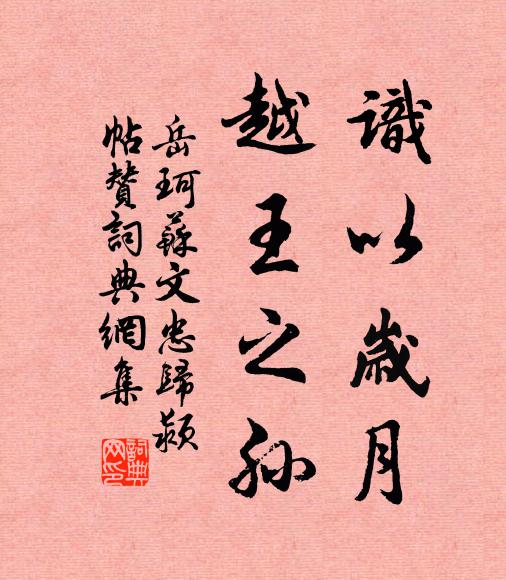 識以歲月
越王之孫
岳珂蘇文忠歸潁
帖贊詞典網集
詞典
网印